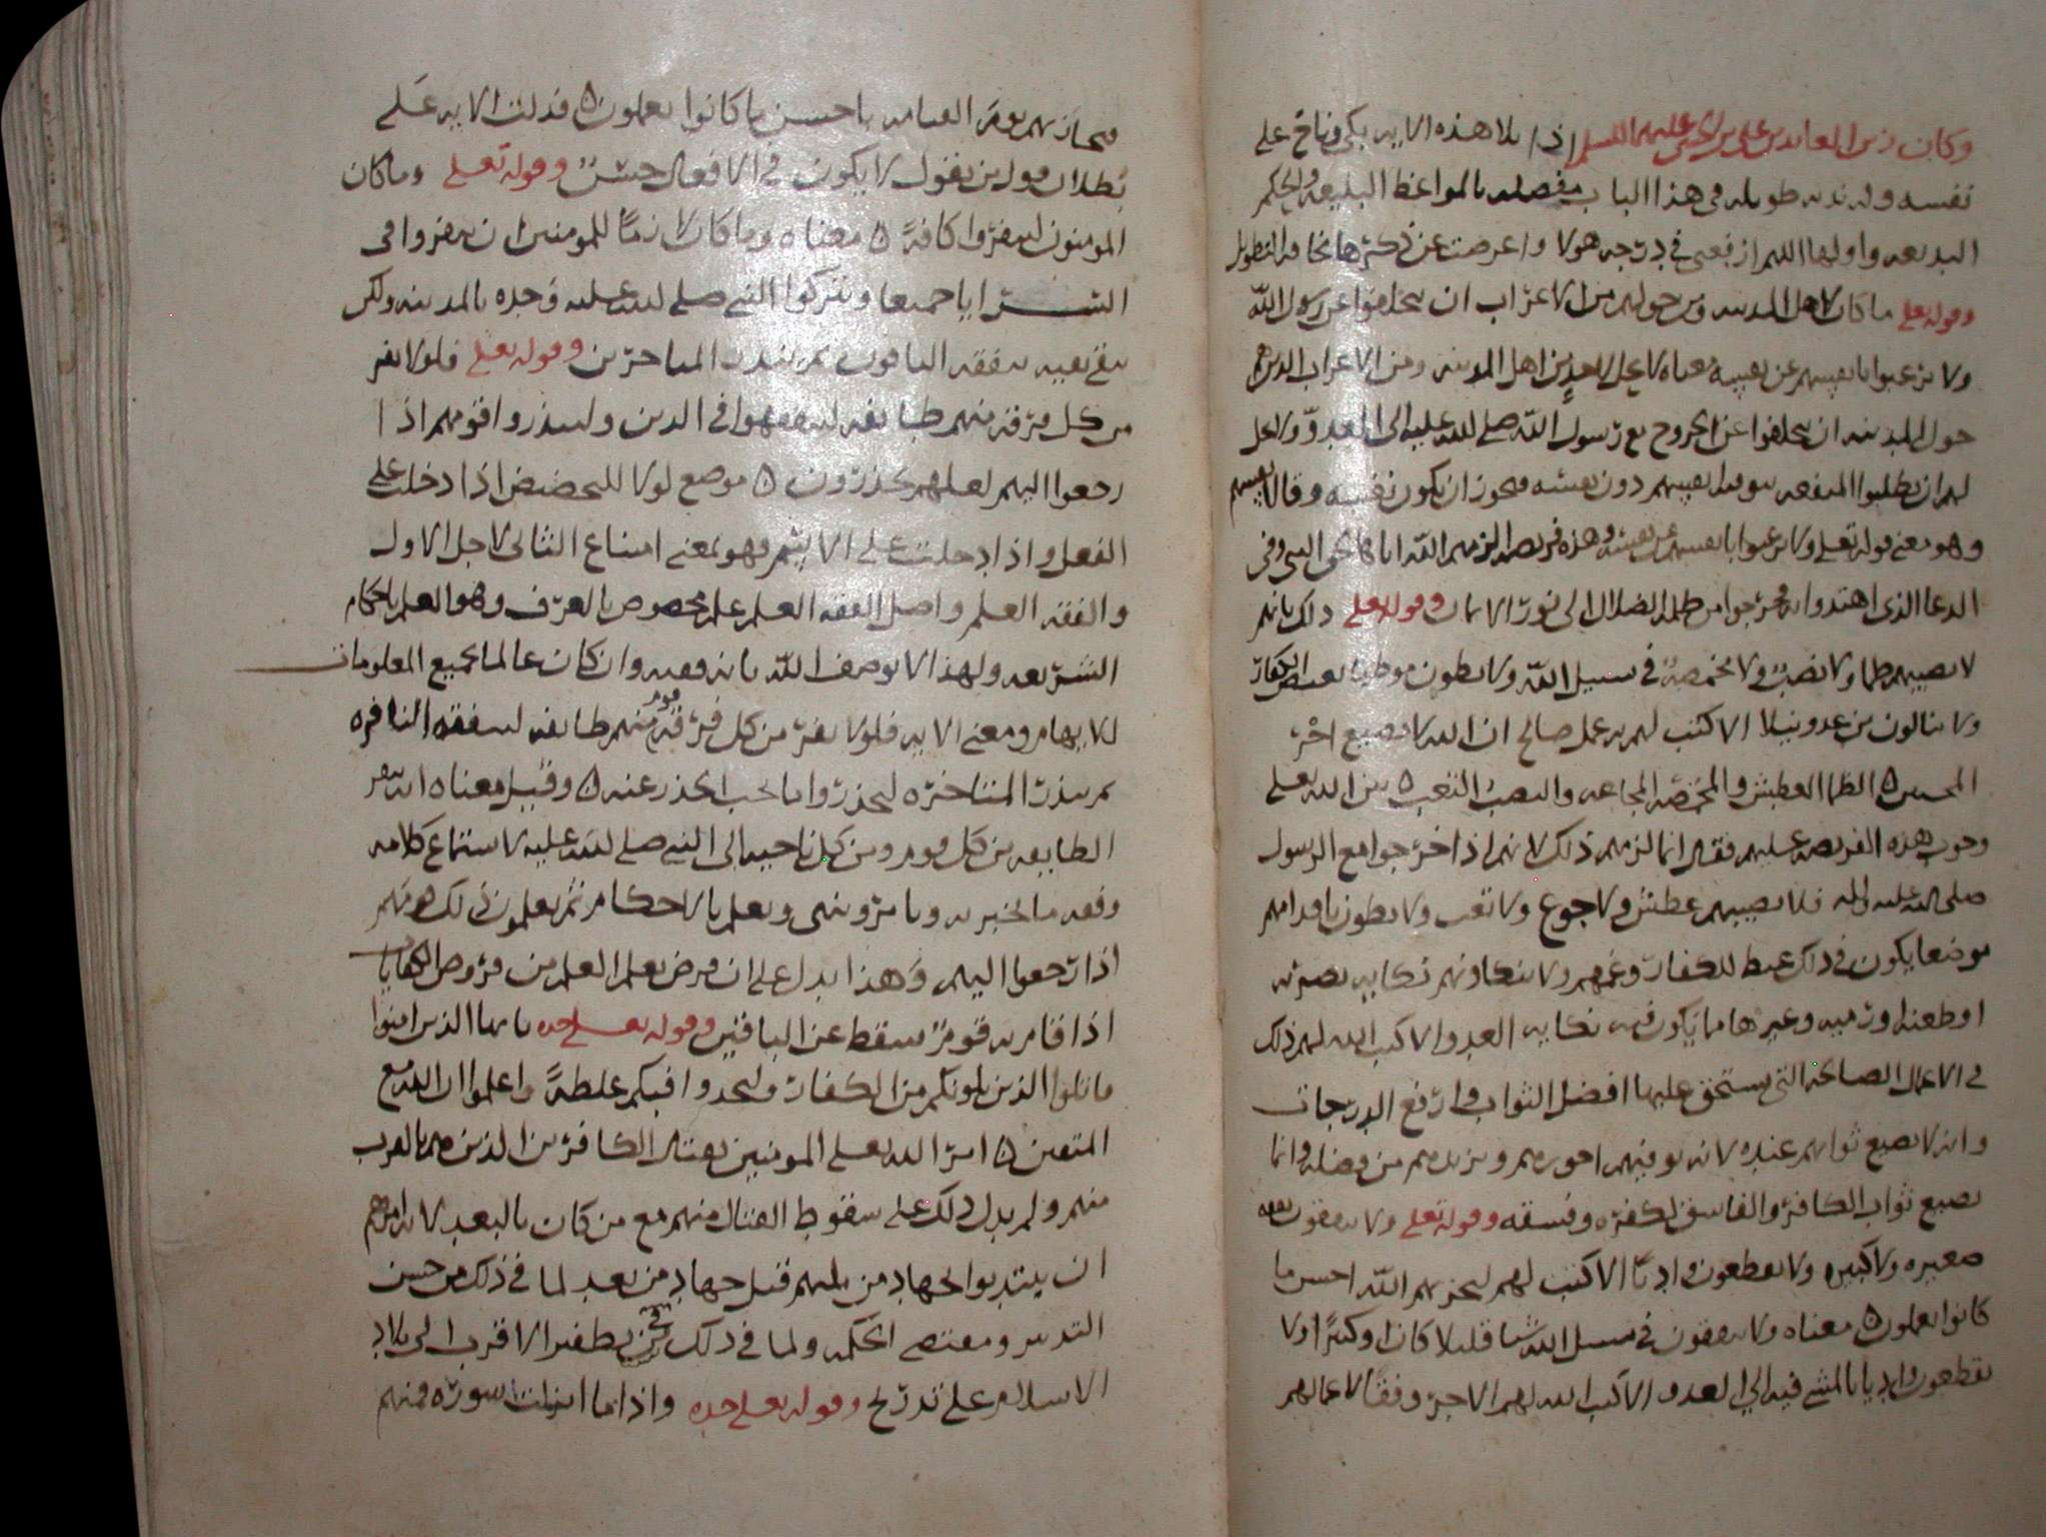 وكان زين العابدين علي بن الحسين عليهم السلم اذا تلا هذه الايه بكى وناح على
نفسه وله ندبه طويله في هذا الباب مفصله بالمواعظ البليغه والحكم
البديعه واولها اللهم ارفعني في درجه هولا واعرضت عن ذكرها مخافه التطويل
وقوله تعلى ما كان لاهل المدينه ومن حولهم من الاعراب ان يتخلفوا عن رسول الله
ولا يرغبوا بانفسهم عن نفسه معناه لا يحل لاحد من اهل المدينه ومن الاعراب الذين هم
حول المدينه ان يتخلفوا عن الخروج مع رسول الله صلى الله عليه الى العدو ولا يحل
لهم ان يطلبوا المنفعه بتوقيه انفسهم دون نفسه فيجوز ان يكون نفسه وقا لانفسهم
وهو معنى قوله تعلى ولا يرغبوا بانفسهم عن نفسه وهذه فريضه الزمهم الله اياها لحق النبي وفي
الدعا الذي اهتدوا به فخرجوا من ظلمه الضلال الى نور الايمان وقوله تعلى ذلك بانهم
لا يصيبهم ظما ولا نصب ولا مخمصة في سبيل الله ولا يطون موطيا يغيض الكفار
ولا ينالون من عدو نيلا الا كتب لهم به عمل صالح ان الله لا يضيع اجر
المحسنين ٥ الظما العطش والمخمصه المجاعه والنصب التعب ٥ بين الله تعلى
وجوب هذه الفريضه عليهم فقال انما لزمهم ذلك لانهم اذا خرجوا مع الرسول
صلى الله عليه واله فلا يصيبهم عطش ولا جوع ولا تعب ولا يطون باقدامهم
موضعا يكون في ذلك غيظ للكفار وغمهم ولا ينكا ونهم نكايه بضربه
او طعنه او رميه وغيرها مما يكون فيه نكايه العدو الا كتب الله لهم ذلك
في الاعمال الصالحه التي يستحق عليها افضل الثواب وارفع الدرجات
وانه لا يضيع ثوابهم عنده لانه يوفيهم اجورهم ويزيدهم من فضله وانما
يضيع ثواب الكافر والفاسق لكفره وفسقه وقوله تعلى ولا ينفقون نفقه
صغيره ولا كبيره ولا يقطعون واديا الا كتب لهم ليجزيهم الله احسن ما
كانوا يعملون ٥ معناه ولا ينفقون في سبيل الله شيا قليلا كان او كثيرا ولا
يقطعون واديا بالمشي فيه الى العدو الا كتب الله لهم الاجر وفقا لاعمالهم
فيجازيهم يوم القيامه باحسن ما كانوا يعملون ٥ فدلت الايه على
بطلان قول من يقول لا يكون في الافعال حسن وقوله تعلى وما كان
المومنون لينفروا كافة ٥ معناه وما كان لازما للمومنين ان ينفروا في
السرايا جميعا ويتركوا النبي صلى الله عليه وحده بالمدينه ولكن
تبقى بقيه يتفقه الباقون ثم ينذرون المتاخرين وقوله تعلى فلولا نفر
من كل فرقه منهم طايفه ليتفقهوا في الدين ولينذروا قومهم اذا
رجعوا اليهم لعلهم يحذرون ٥ موضع لولا للتحضيض اذا دخلت على
الفعل واذا دخلت على الاسم فهو بمعنى امتناع الثاني لاجل الاول
والفقه العلم واصل الفقه العلم علم مخصوص بالعرف وهو العلم باحكام
الشريعه ولهذا لا يوصف الله بانه فقيه وان كان عالما بجميع المعلومات
للايهام ومعنى الايه فلولا نفر من كل فرقه قوم منهم طايفه لتتفقه النافره
ثم ينذر المتاخره ليحذروا ما يجب الحذر عنه ٥ وقيل معناه ان تنفر
الطايفه من كل قوم ومن كل ناحيه الى النبي صلى الله عليه لاستماع كلامه
وفقه ما يخبر به ويامر وينهى ويعلم بالاحكام ثم يعلمون ذلك قومهم
اذا رجعوا اليهم وهذا يدل على ان فرض تعلم العلم من فروض الكفايات
اذا قام به قوم سقط عن الباقين وقوله تعلى جده يايها الذين امنوا
قاتلوا الذين يلونكم من الكفار وليجدوا فيكم غلظة واعلموا ان الله مع
المتقين ٥ امر الله تعلى المومنين بقتال الكافرين الذين هم بالقرب
منهم ولم يدل ذلك على سقوط القتال منهم مع من كان بالبعد لانه امرهم
ان يبتدوا بجهاد من يليهم قبل جهاد من بعد لما في ذلك من حسن
التدبير ومقتضى الحكمه ولما في ذلك من تطفير الاقرب الى بلاد
الاسلام على تدريج وقوله تعلى جده واذا ما انزلت سوره فمنهم